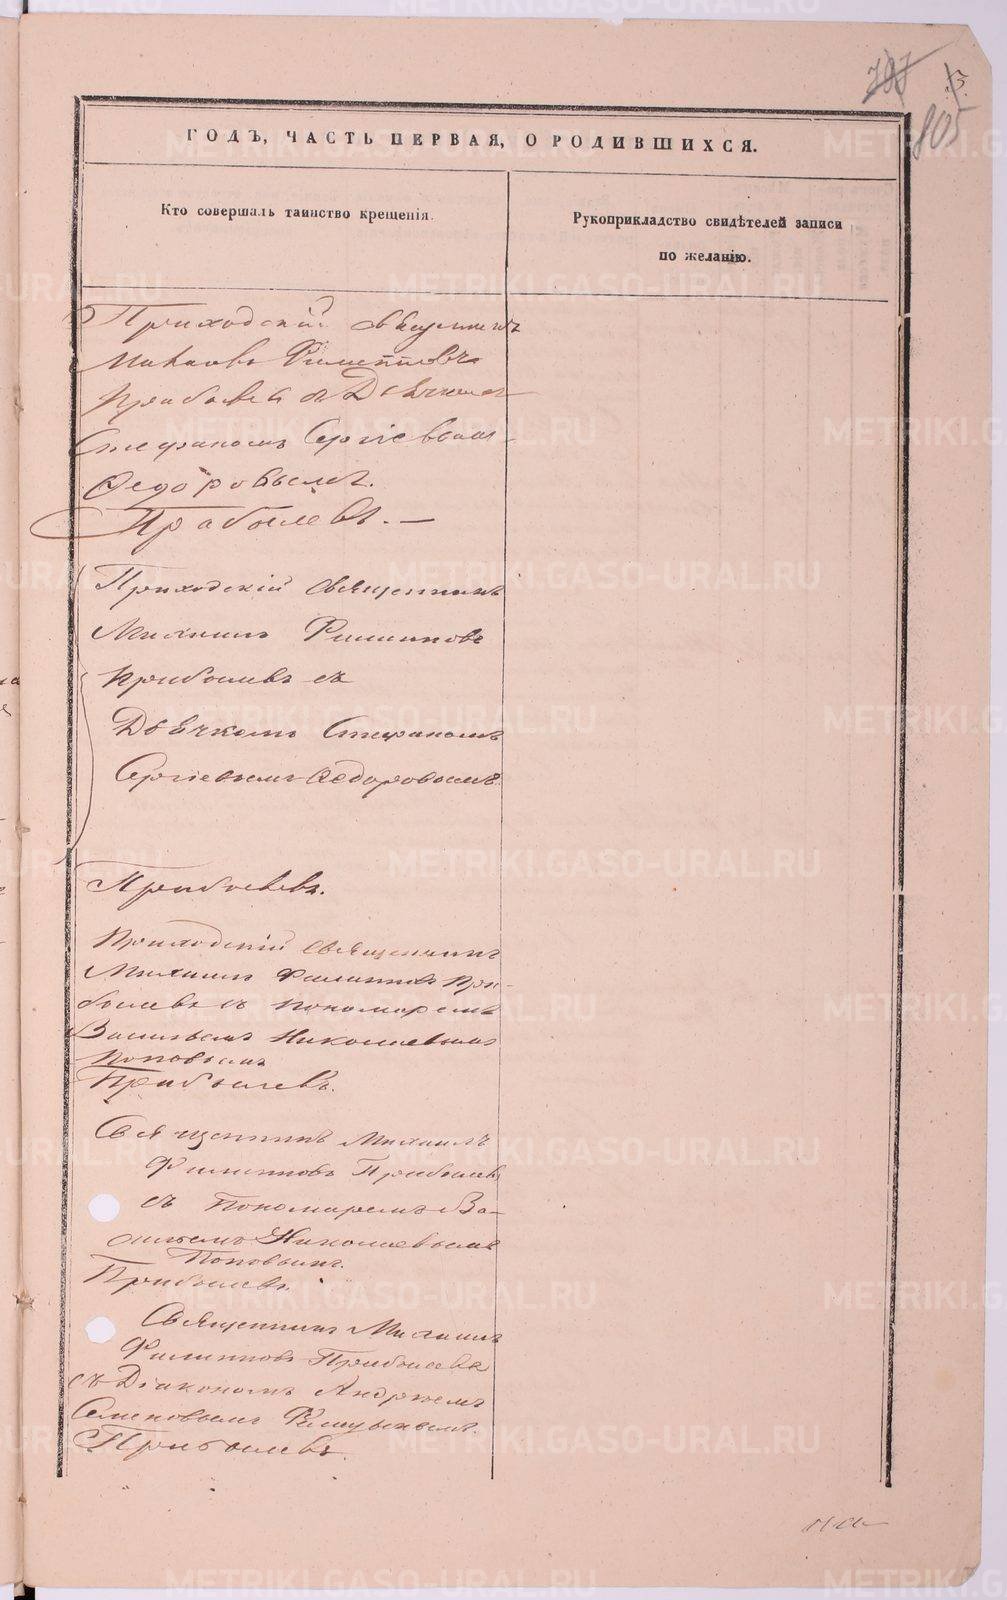 805
ГОДЪ, ЧАСТЬ ПЕРВАЯ, О РОДИВШИХСЯ.
Кто совершалъ таинство крещенія.
Рукоприкладство свидѣтелей записи
по желанію.
Приходскій священникъ
Михаилъ Филипповъ
Прибылевъ съ Дьячкомъ
Стефаномъ Сергіевымъ
Ѳедоровымъ.
Прибылевъ. —
Приходскій священникъ
Михаилъ Филипповъ
Прибылевъ съ
Дьячкомъ Стефаномъ
Сергіевымъ Ѳедоровымъ
Прибылевъ.
Приходскій священникъ
Михаилъ Филипповъ При-
былевъ съ пономаремъ
Васильемъ Николаевымъ
Поповымъ
Прибылевъ.
Священникъ Михаилъ
Филипповъ Прибылевъ
съ Пономаремъ Ва-
сильемъ Николаевымъ
Поповымъ.
Прибылевъ.
Священникъ Михаилъ
Филипповъ Прибылевъ
съ Діакономъ Андреемъ
Семеновымъ
Прибылевъ.
METRIKI.GASO-URAL.RU